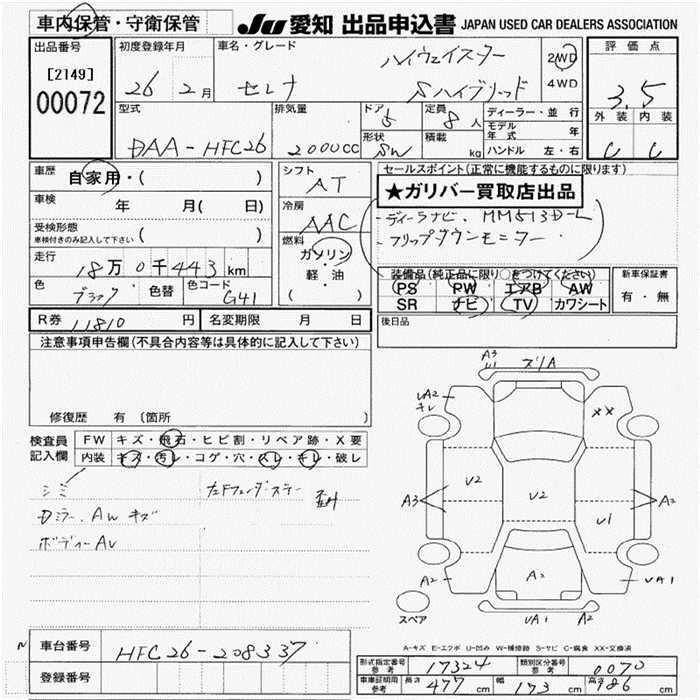 車内保管・守衛保管
JU 愛知 出品申込書 JAPAN USED CAR DEALERS ASSOCIATION
出品番号
[2149]
00072
初度登録年月
26年2月
車名・グレード
セレナ ハイウェイスター
Sハイブリッド
2WD
4WD
評価点
3.5
外装 内装
C C
型式
DAA-HFC26
排気量
2000cc
ドア 5
形状 SW
定員 8人
積載 kg
ディーラー・並行
モデル年式 年
ハンドル 左・右
車歴 自家用・( )
車検 年 月( 日)
受検形態
車検付きのみ記入して下さい ( )
走行
18万0千443km
色 ブラック 色替 色コード G41
シフト
AT
冷房
AAC
燃料
ガソリン
・
軽・油
( )
セールスポイント(正常に機能するものに限ります)
★ガリバー買取店出品
-ディーラナビ、MM513D-L
-フリップダウンモニター
装備品(純正品に限り○をつけてください)
PS PW エアB AW
SR ナビ TV カワシート
新車保証書
有・無
R券 11810円 名変期限 月 日
後日品
注意事項申告欄(不具合内容等は具体的に記入して下さい)
修復歴 有 〔箇所 〕
検査員
記入欄
FW キズ・飛石・ヒビ割・リペア跡・X要
内装 キズ・汚レ・コゲ・穴・スレ・キレ・破レ
シミ
Dミラー、AW キズ
ボディーAU
A3
スリA
UA2
キレ
XX
U2
U2
A3
A2
U1
A2
A2
UA1
UA1 A2
スペア
車台番号 HFC26-208337
登録番号
A-キズ E-エクボ U-凹み W-補修跡 S-サビ C-腐食 XX-交換済
型式指定番号
参考
17324
類別区分番号
参考
0070
車庫証明用
参考
長さ 477cm 幅 173cm 高さ 186cm